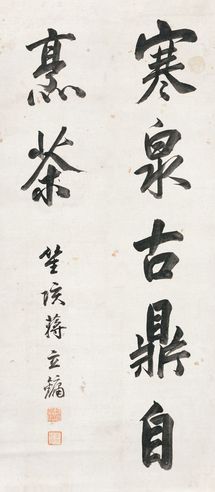 寒泉古鼎自
烹茶
笙陔蔣立鏞